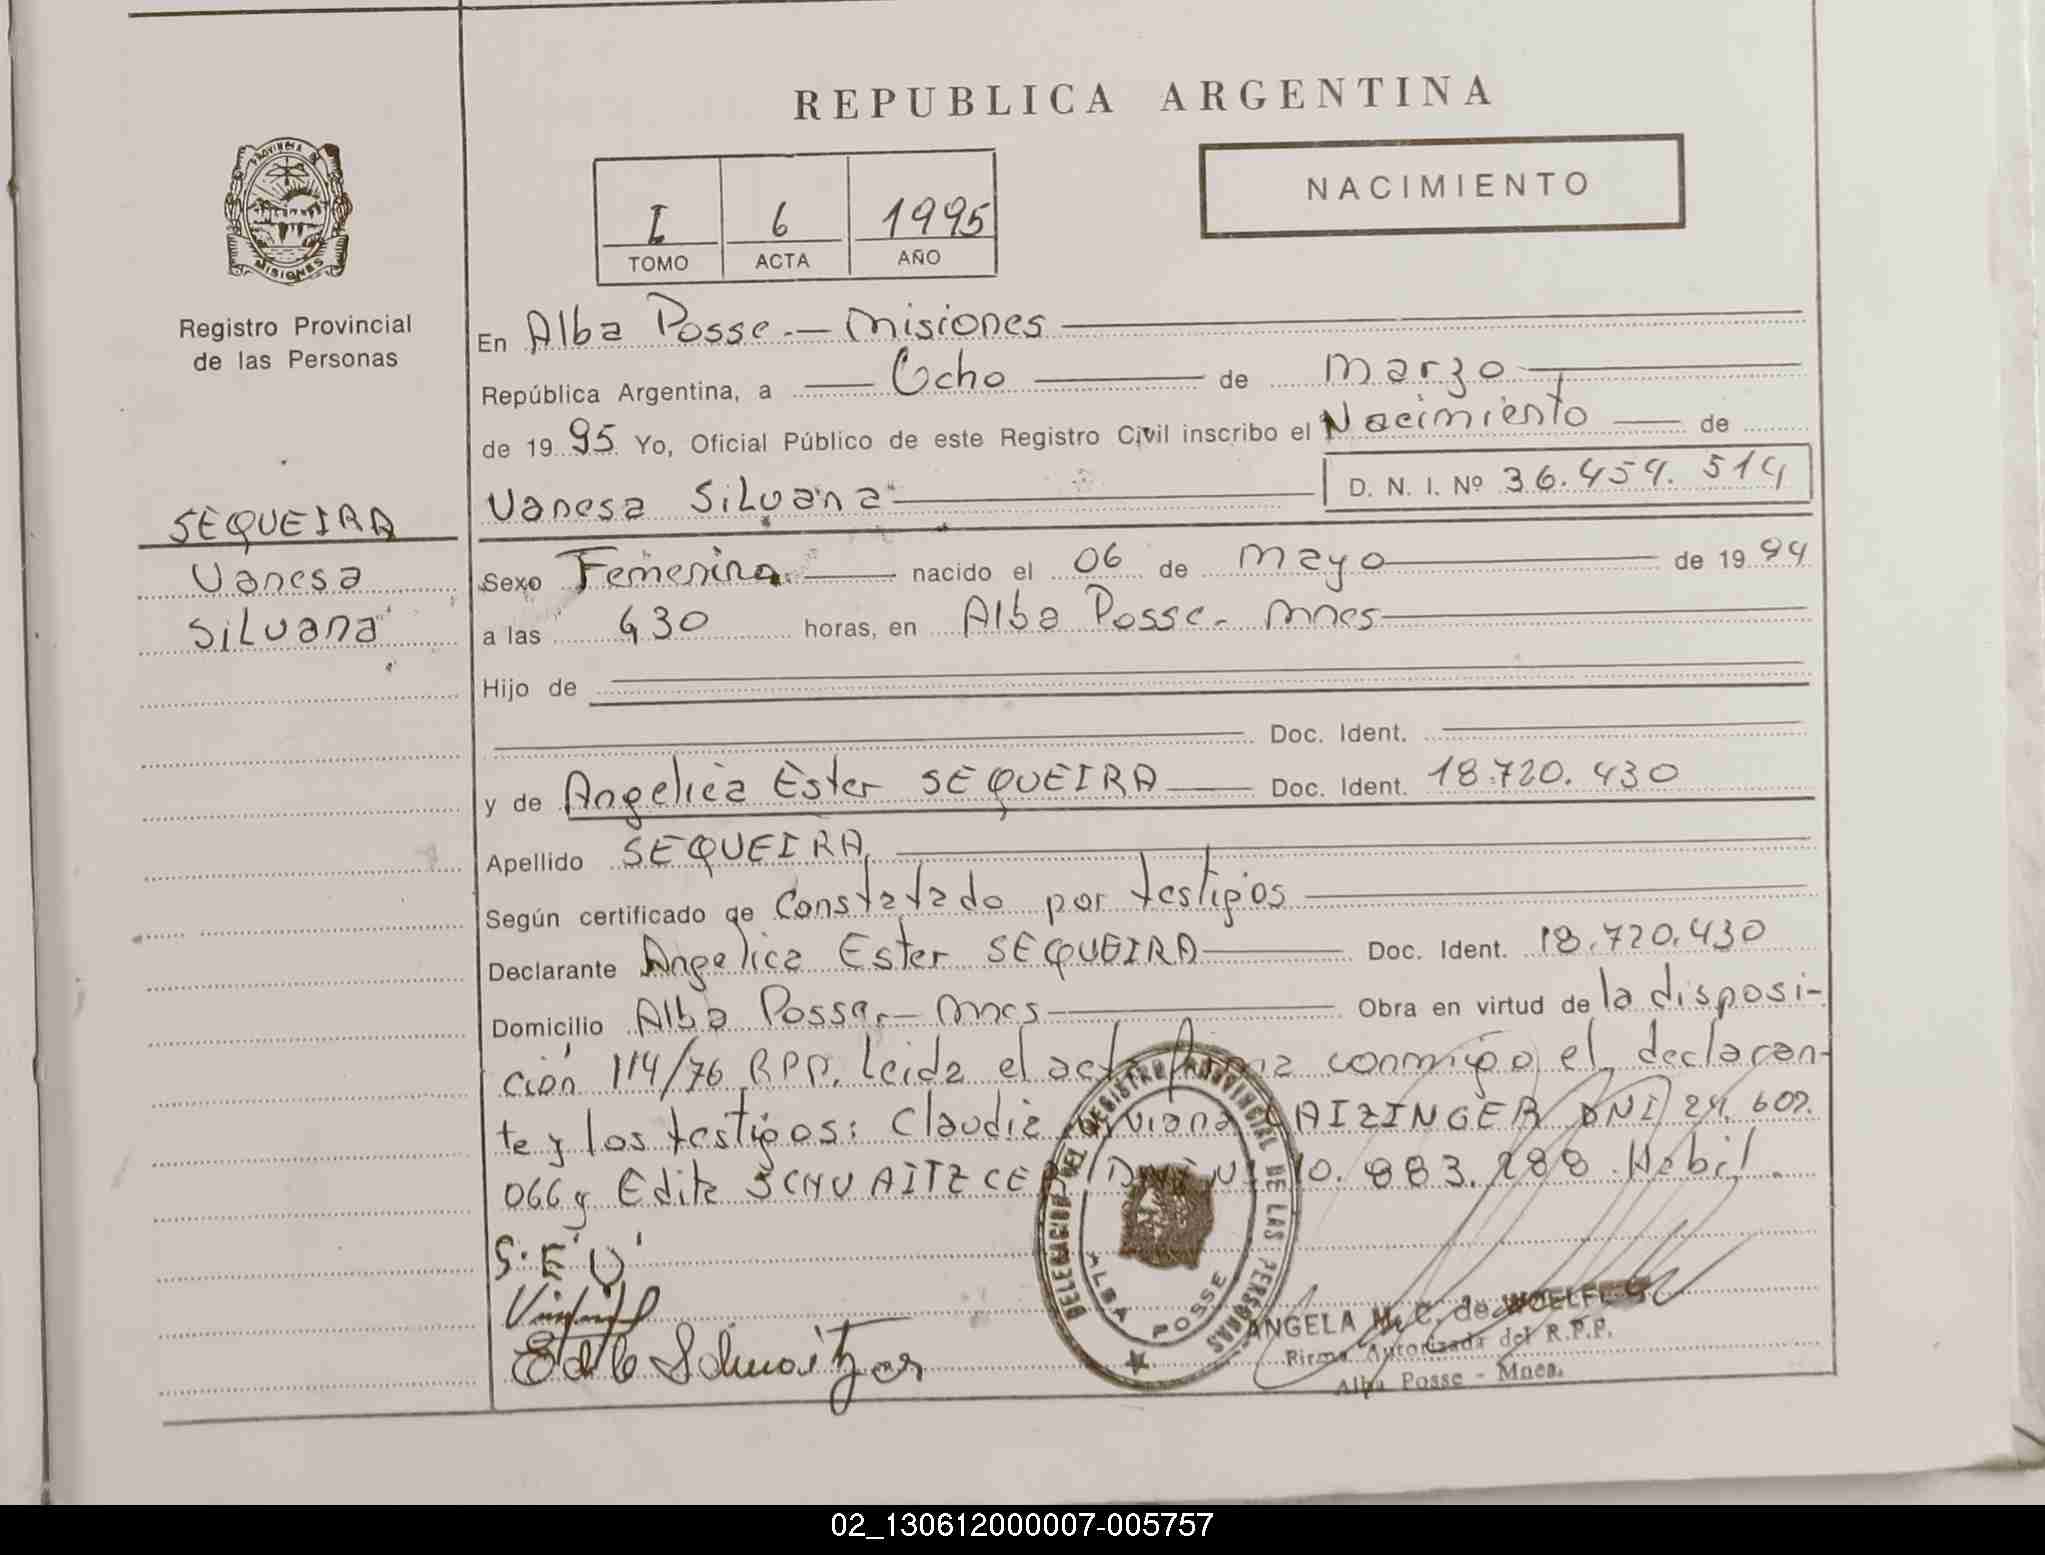 REPUBLICA ARGENTINA
PROVINCIA DE
MISIONES
Registro Provincial
de las Personas
I 6 1995
TOMO ACTA AÑO
NACIMIENTO
SEQUEIRA
Vanesa
Silvana
En Alba Posse.- Misiones
República Argentina, a Ocho de Marzo
de 1995 Yo, Oficial Público de este Registro Civil inscribo el Nacimiento de
Vanesa Silvana D. N. I. Nº 36.459.514
Sexo Femenina nacido el 06 de Mayo de 1994
a las 430 horas, en Alba Posse.- Mnes
Hijo de
Doc. Ident.
y de Angelica Ester SEQUEIRA Doc. Ident. 18.720.430
Apellido SEQUEIRA
Según certificado de Constatado por testigos
Declarante Angelica Ester SEQUEIRA Doc. Ident. 18.720.430
Domicilio Alba Posse.- Mnes Obra en virtud de la disposi-
ción 114/76 RPP. Leida el acta firma conmigo el declaran-
te y los testigos: Claudia Viviana DNI 24.607.
066 y Edita DNI Nº 10.883.288. Habil.
S. E U
DELEGACION DEL REGISTRO PROVINCIAL DE LAS PERSONAS
ALBA POSSE
ANGELA M. C. de WOELFL
Firma Autorizada del R.P.P.
Alba Posse - Mnes.
02_130612000007-005757